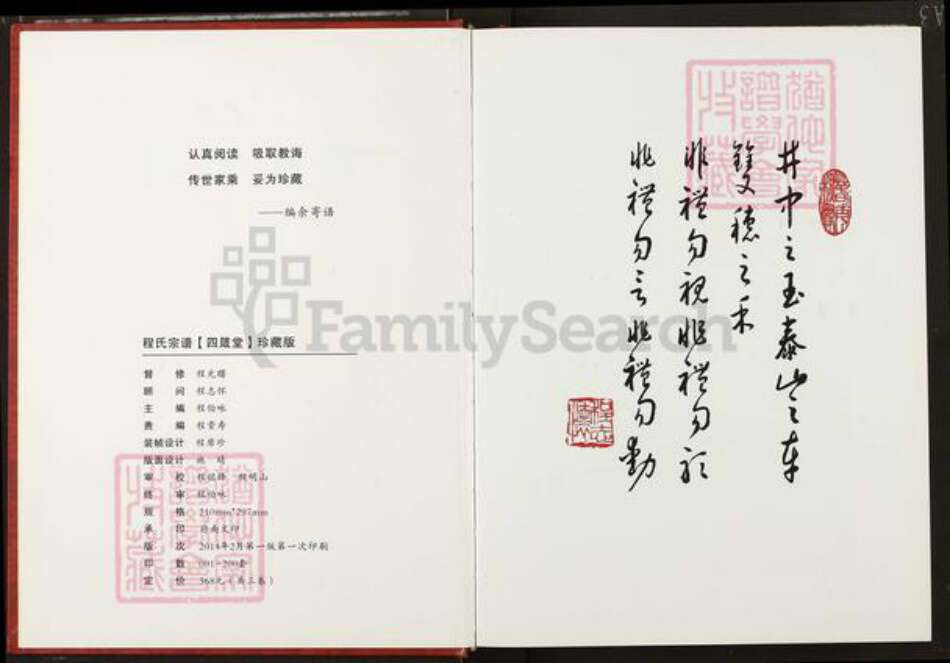 认真阅读 吸取教诲
传世家乘 妥为珍藏
——编余寄语
程氏宗谱【四箴堂】珍藏版
督 修 程光曙
顾 问 程志怀
主 编 程伯咏
责 编 程贵寿
装帧设计
版面设计
审 校 程明山
终 审 程伯咏
规 格 210mm*297mm
承 印
版 次 2014年2月第一版第一次印刷
印 数 001-200套
定 价 368元(共三卷)
FamilySearch
井中之玉泰山之車
雙穗之禾
非禮勿視非禮勿聽
非禮勿言非禮勿動